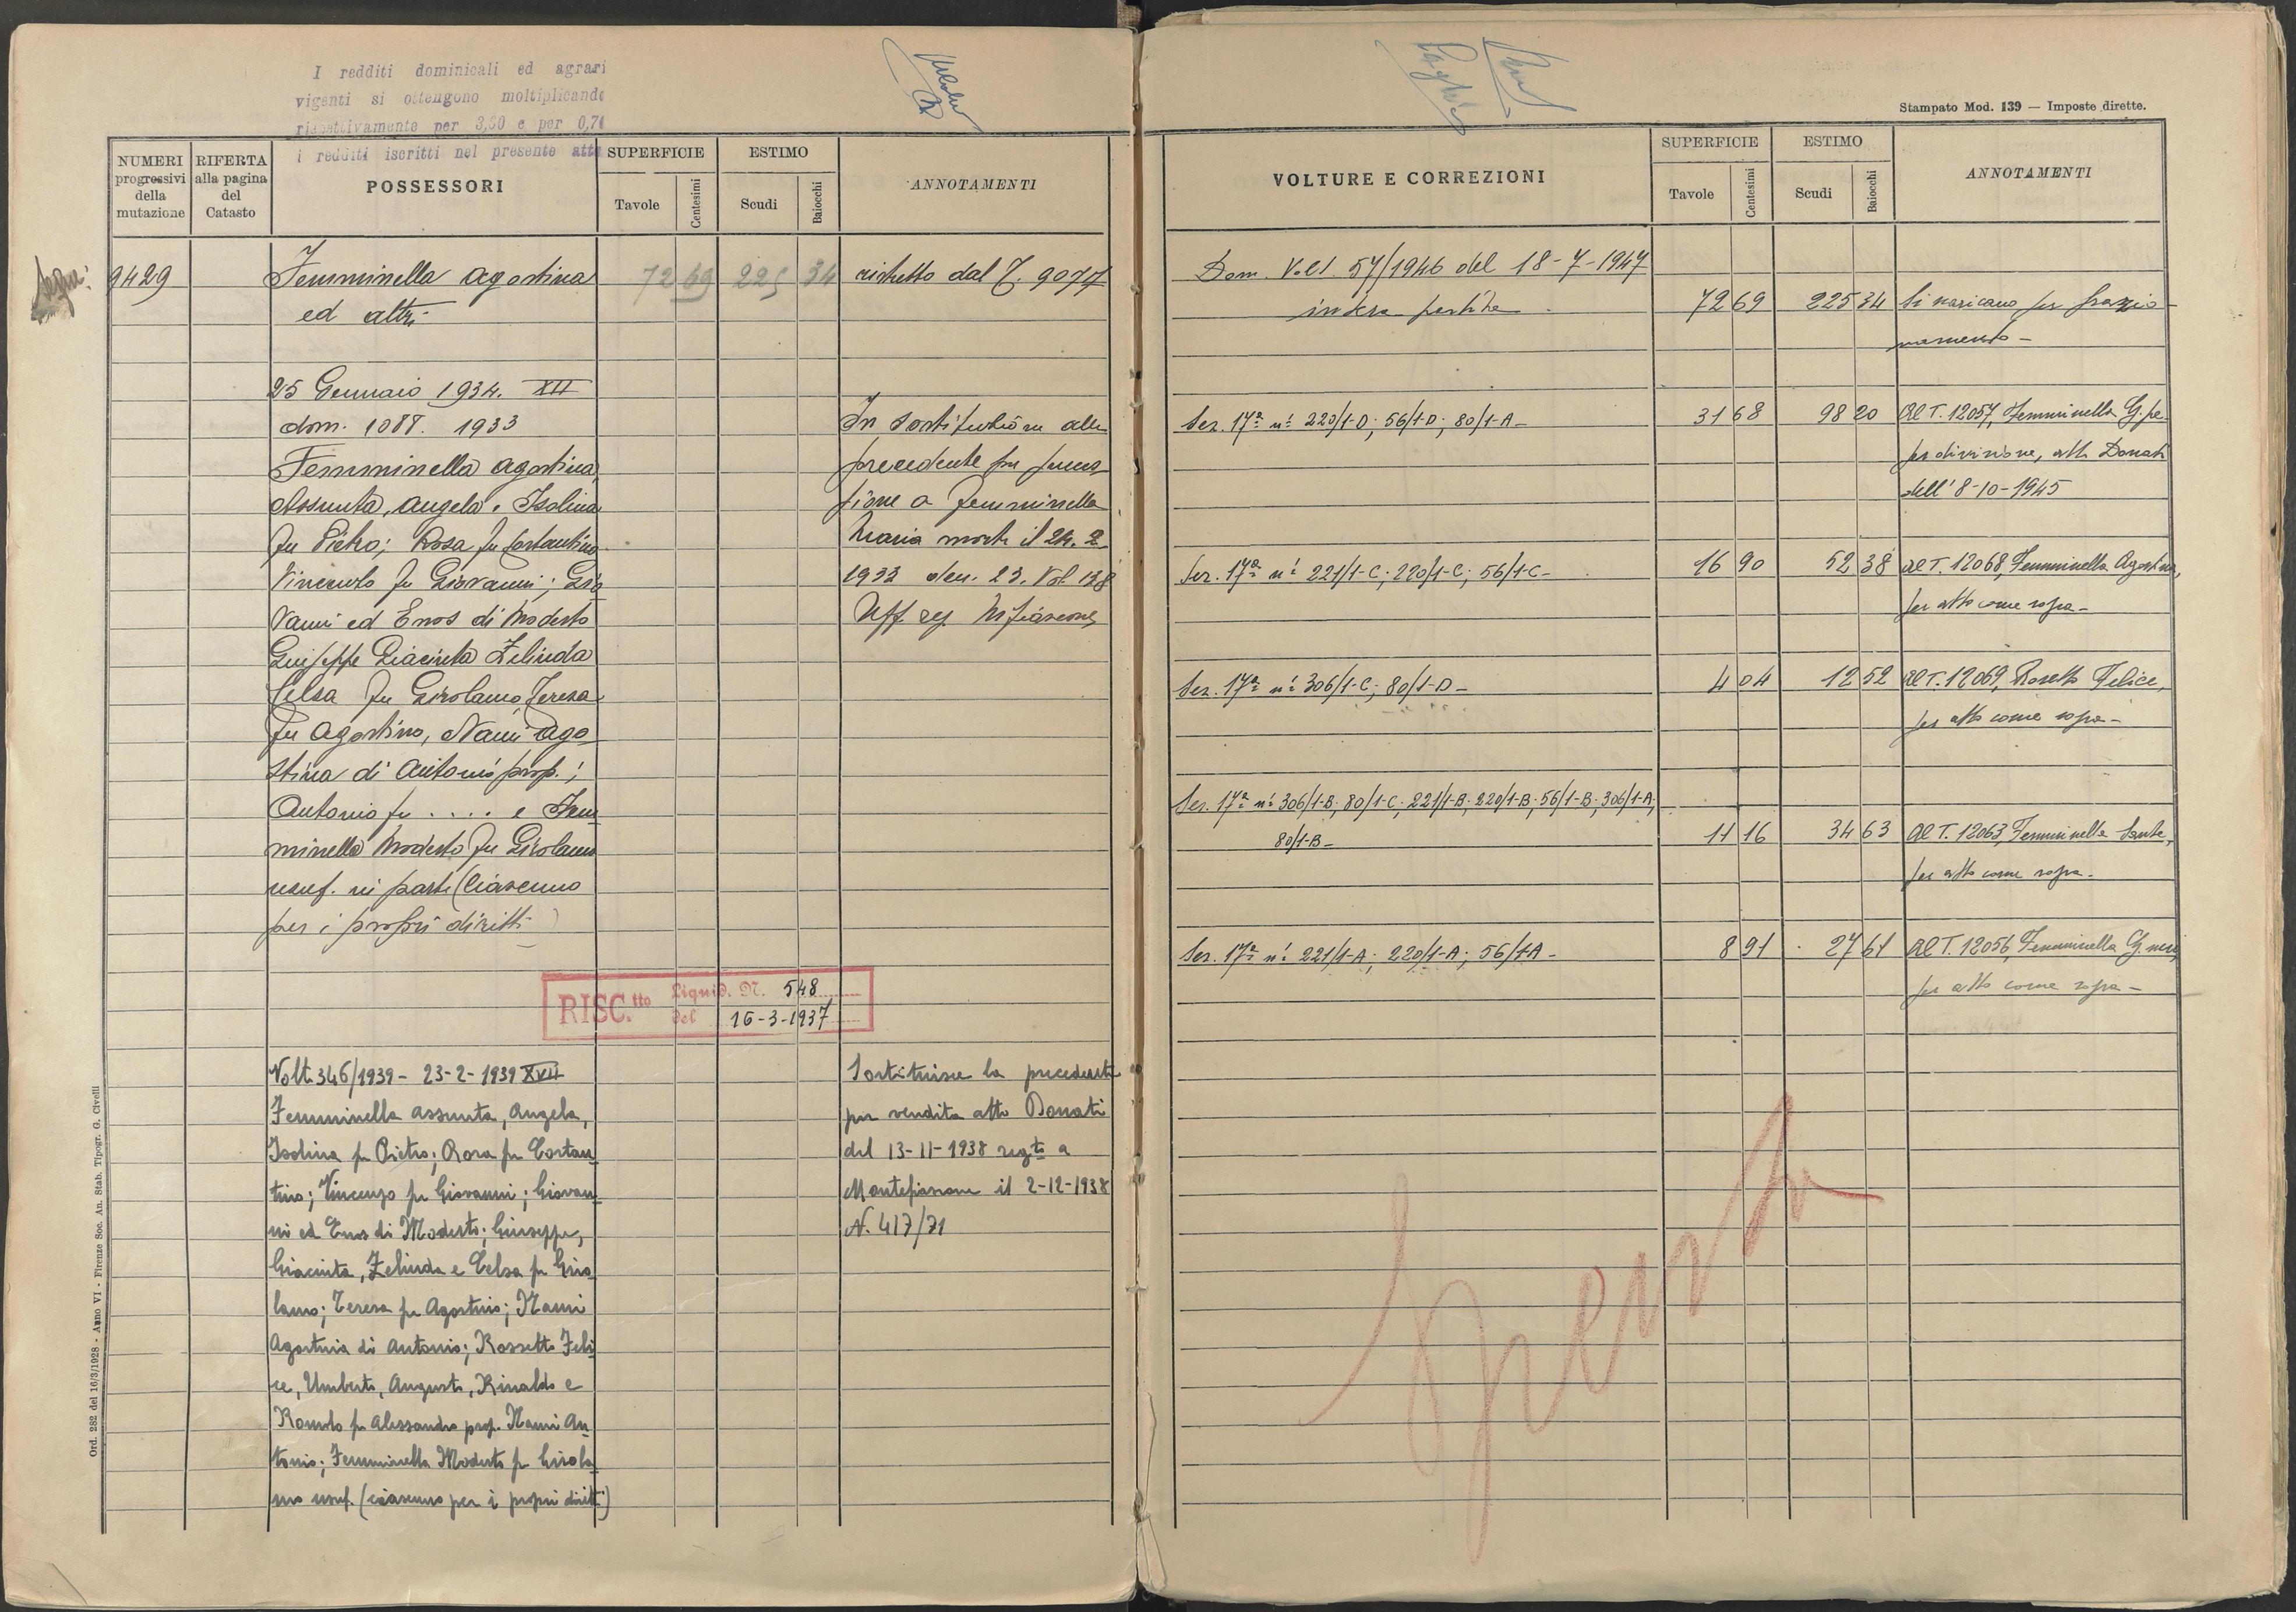 I redditi dominicali ed agrari
vigenti si ottengono moltiplicando
rispettivamente per 3,30 e per 0,70
i redditi iscritti nel presente atto
NUMERI progressivi della mutazione
RIFERTA alla pagina del Catasto
POSSESSORI
SUPERFICIE
Tavole
Centesimi
ESTIMO
Scudi
Baiocchi
ANNOTAMENTI
Segue:
9429 Femminella Agostina 72 69 225 34 ristretto dal T. 9077
ed altri
25 Gennaio 1934. XII
dom. 1088. 1933
Femminella Agostina,
Assunta, Angela, Isolina
fu Pietro; Rosa fu Costantino
Vincenzo fu Giovanni; Gio
vanni ed Enos di Modesto
Giuseppe Giacinta Zelinda
Celsa fu Girolamo, Teresa
fu Agostino, Nami Ago
stina di Antonio prop.;
Antonio fu .... e Fem
minella Modesto fu Girolamo
usuf. in parte (Ciascuno
per i propri diritti)
In sostituzione alla
precedente per
Femminella
Maria morta il 24.2
1933 den. 23. Vol 138
Uff. reg.
RISC.tto Liquid. N. 548
del 16-3-1937
Volt. 346/1939 - 23-2-1939 XVII
Femminella Assunta, Angela,
Isolina fu Pietro; Rosa fu Costan
tino; Vincenzo fu Giovanni; Giovan
ni ed Enos di Modesto; Giuseppe,
Giacinta, Zelinda e Celsa fu Giro
lamo; Teresa fu Agostino; Nami
Agostina di Antonio; Rossetto Feli
ce, Umberto, Augusto, Rinaldo e
Romolo fu Alessandro prop. Nami An
tonio; Femminella Modesto fu Girola
mo usuf. (ciascuno per i propri diritti)
Sostituisce la precedente
per vendita atto Donati
del 13-11-1938 regto a
Montefiascone il 2-12-1938
N. 417/71
Ord. 282 del 16/3/1928 - Anno VI - Firenze Soc. An. Stab. Tipogr. G. Civelli
Stampato Mod. 139 — Imposte dirette.
VOLTURE E CORREZIONI
SUPERFICIE
Tavole
Centesimi
ESTIMO
Scudi
Baiocchi
ANNOTAMENTI
Dom. Volt. 57/1946 del 18-7-1947
intera partita 72 69 225 34 Si scaricano per frazio-
namento -
Sez. 17ª nⁱ 220/1-D; 56/1-D; 80/1-A - 31 68 98 20 Al T. 12057, Femminella G.pe
per divisione, atto Donati
dell' 8-10-1945
Sez. 17ª nⁱ 221/1-C; 220/1-C; 56/1-C - 16 90 52 38 Al T. 12068, Femminella Agostina,
per atto come sopra -
Sez. 17ª nⁱ 306/1-C; 80/1-D - 4 04 12 52 Al T. 12069, Rosetto Felice,
per atto come sopra -
Sez. 17ª nⁱ 306/1-B; 80/1-C; 221/1-B; 220/1-B; 56/1-B; 306/1-A;
80/1-B - 11 16 34 63 Al T. 12063, Femminella Sante,
per atto come sopra -
Sez. 17ª nⁱ 221/1-A; 220/1-A; 56/1-A - 8 91 27 61 Al T. 12056, Femminella G.nni
per atto come sopra -
Spenta